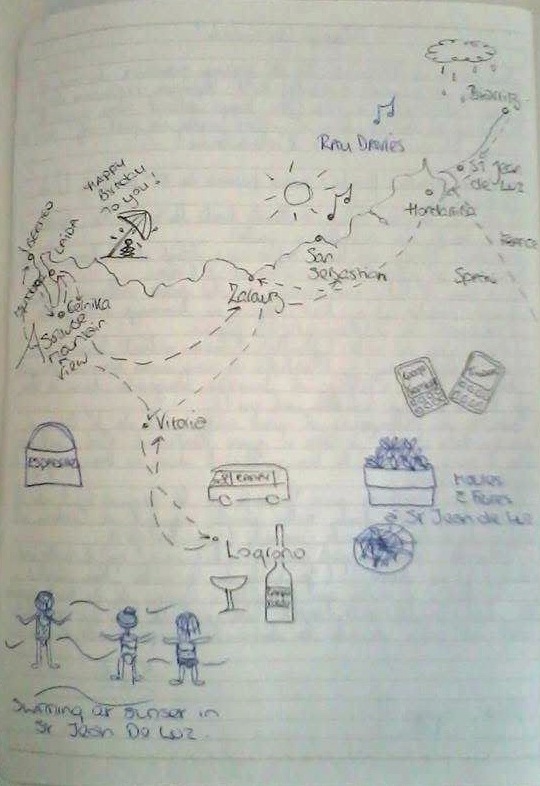 Biarritz
RAY DAVIES
St Jean
de Luz
Hondarribia
France
Spain
HAPPY
BIRTHDAY
TO YOU!
BERMEO
LAIDA
San
Sebastian
Zarautz
Gernika
Sollube
mountain
view
Vitoria
ESPADRILLES
Logroño
MOULES
& FRITES
@ St Jean de Luz
Swimming at sunset in
St Jean De Luz.